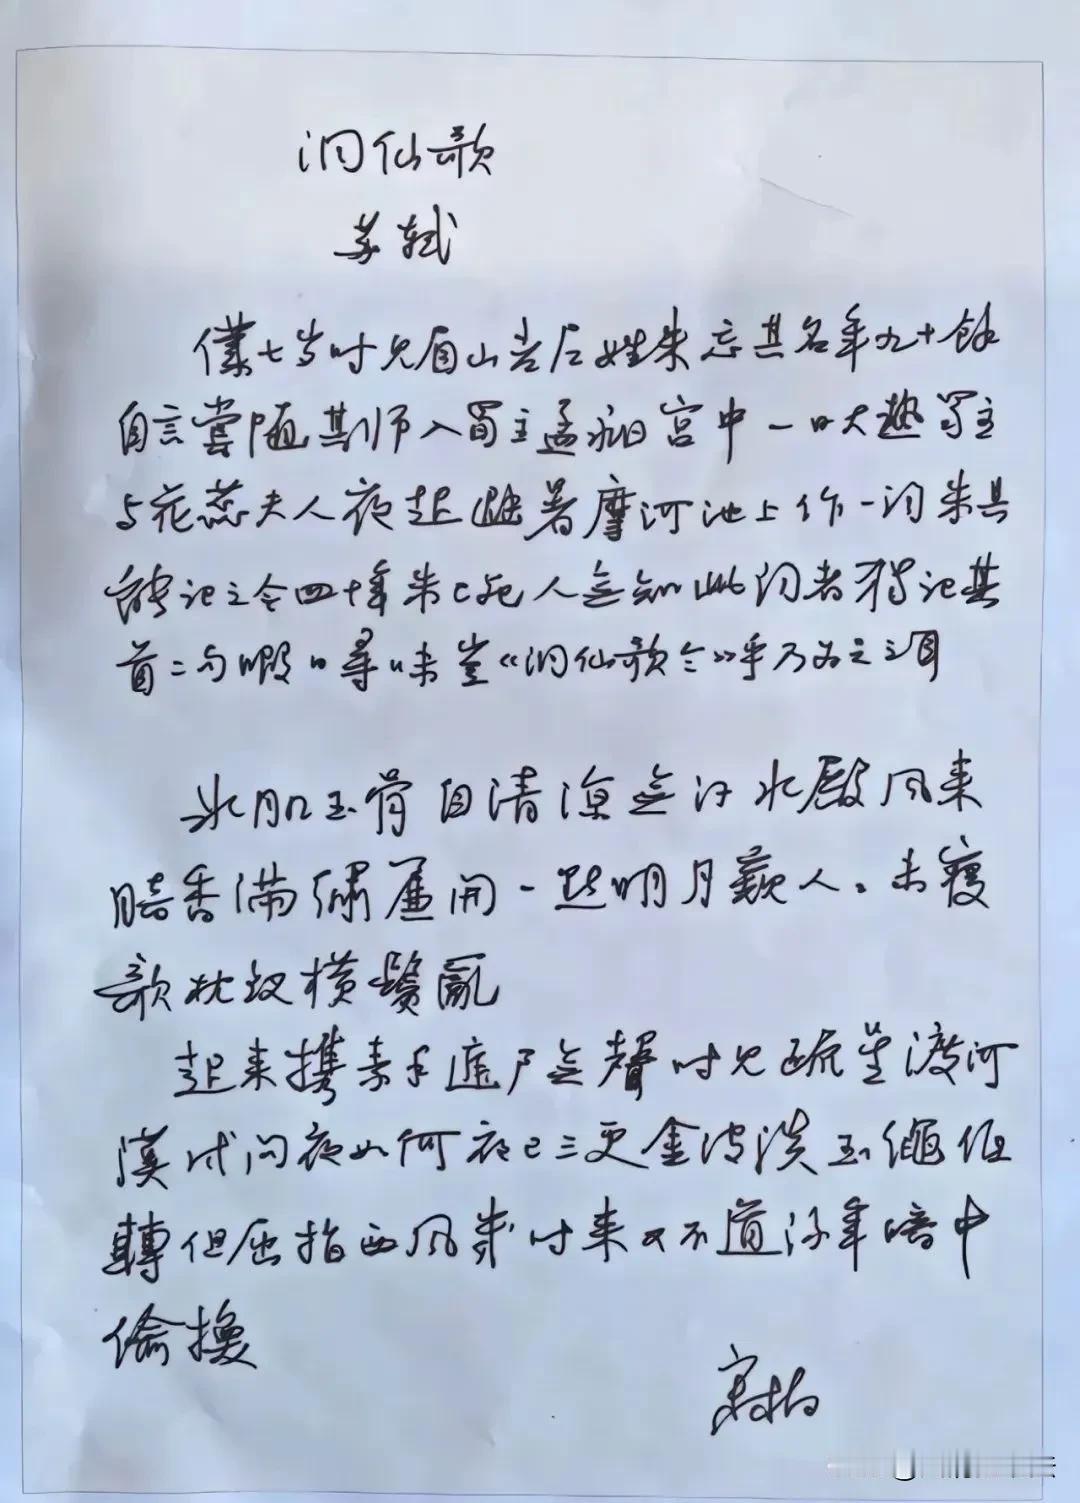 洞仙歌
苏轼
僕七岁时见眉山老尼姓朱忘其名年九十餘
自言嘗随其师入蜀主孟昶宫中一日大热蜀主
与花蕊夫人夜起避暑摩河池上作一词朱具
能记之今四十年朱已死人無知此词者独记其
首二句暇日尋味豈《洞仙歌令》乎乃为足之耳
冰肌玉骨自清凉無汗水殿风来
暗香满绣簾開一點明月窺人。未寢
歌枕钗横鬢亂
起来携素手庭户無聲时见疏星渡河
漢试问夜如何夜已三更金波淡玉繩低
轉但屈指西风幾时来又不道流年暗中
偷换